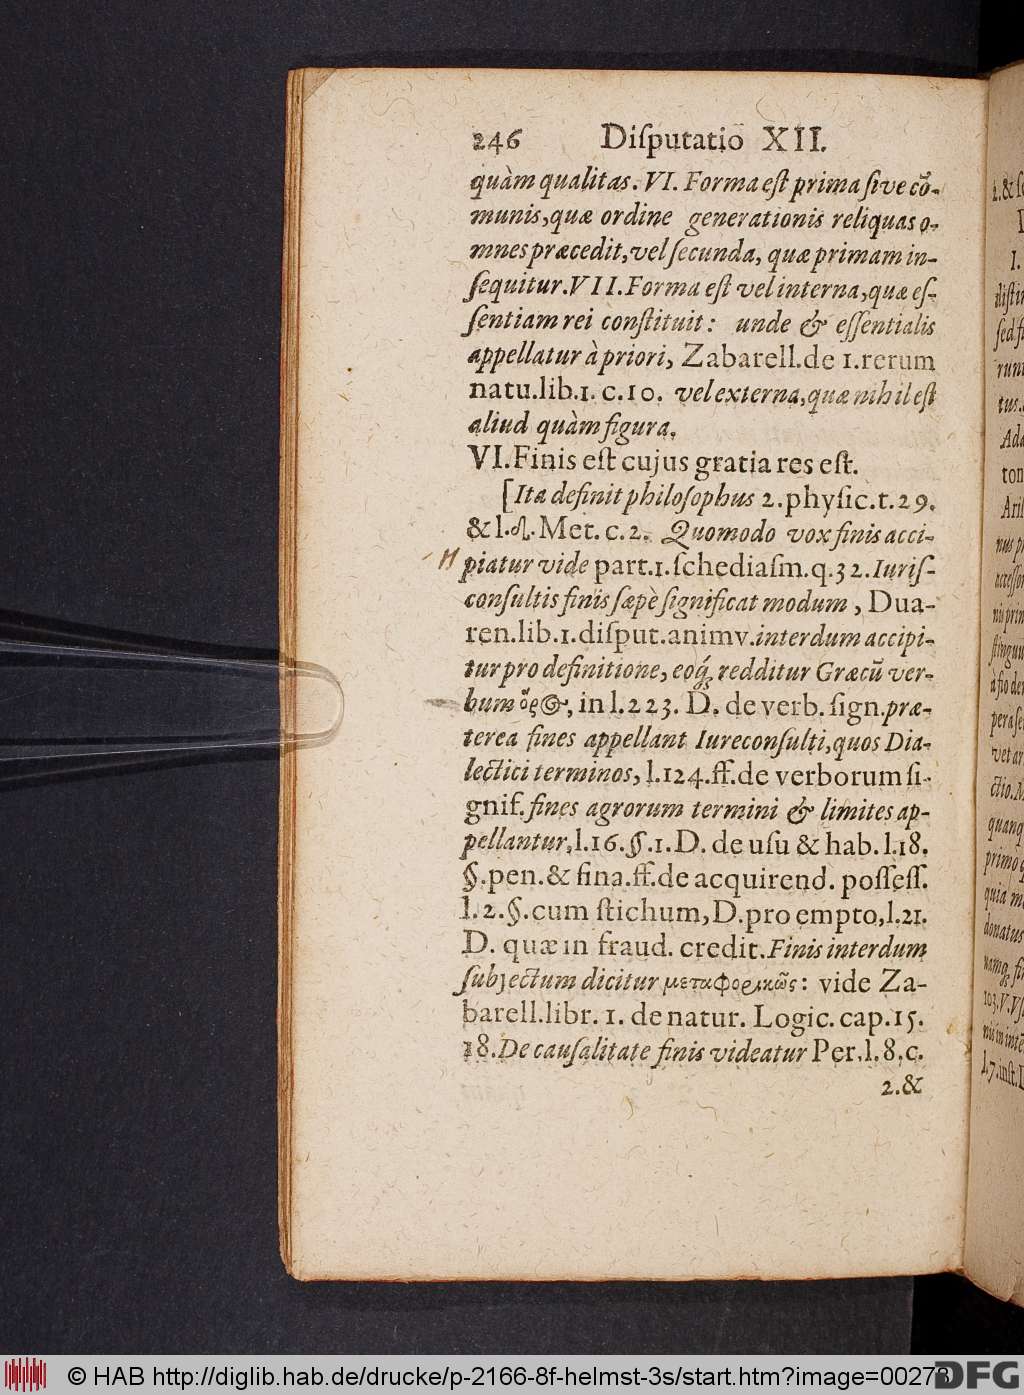 246 Diſputatio XII.
quàm qualitas. VI. Forma eſt prima ſive cõ-
munis, quæ ordine generationis reliquas o-
mnes præcedit, vel ſecunda, quæ primam in-
ſequitur. VII. Forma eſt vel interna, quæ eſ-
ſentiam rei conſtituit: unde & eſſentialis
appellatur à priori, Zabarell. de 1. rerum
natu. lib. 1. c. 10. vel externa, quæ nihil eſt
aliud quàm figura.
VI. Finis eſt cujus gratia res eſt.
[Ita definit philoſophus 2. phyſic. t. 29.
& l. Met. c. 2. Quomodo vox finis acci-
piatur vide part. 1. ſchediaſm. q. 32. Iuriſ-
conſultis finis ſæpè ſignificat modum, Dua-
ren. lib. 1. diſput. animv. interdum accipi-
tur pro definitione, eoq́; redditur Græcũ ver-
bum ὅρος, in l. 223. D. de verb. ſign. præ-
terea fines appellant Iureconſulti, quos Dia-
lectici terminos, l. 124. ff. de verborum ſi-
gnif. fines agrorum termini & limites ap-
pellantur, l. 16. §. 1. D. de uſu & hab. l. 18.
§. pen. & fina. ff. de acquirend. poſſeſſ.
l. 2. §. cum ſtichum, D. pro empto, l. 21.
D. quæ in fraud. credit. Finis interdum
ſubjectum dicitur μεταφορικῶς: vide Za-
barell. libr. 1. de natur. Logic. cap. 15.
18. De cauſalitate finis videatur Per. l. 8. c.
2. &
© HAB http://diglib.hab.de/drucke/p-2166-8f-helmst-3s/start.htm?image=00278
DFG